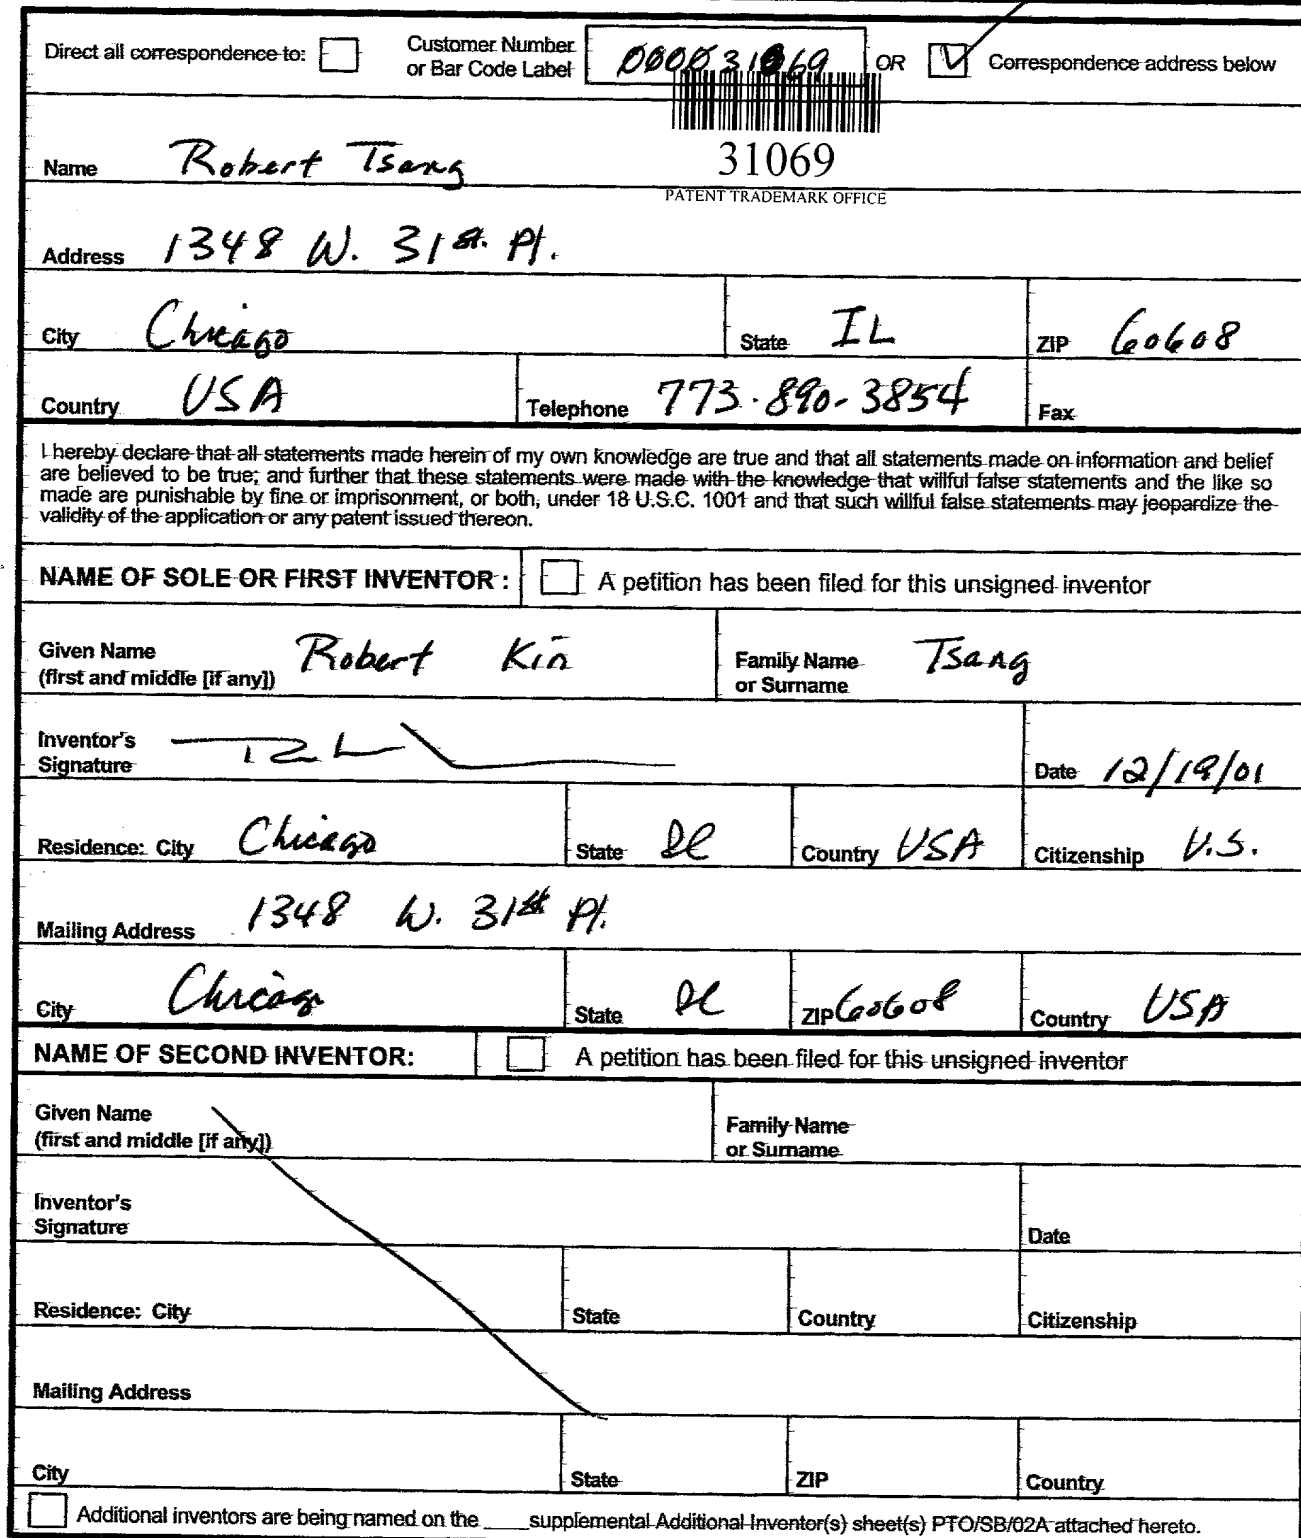 Direct all correspondence to: Customer Number or Bar Code Label 000031069 OR Correspondence address below
31069
PATENT TRADEMARK OFFICE
Name Robert Tsang
Address 1348 W. 31st. Pl.
City Chicago State IL ZIP 60608
Country USA Telephone 773-890-3854 Fax
I hereby declare that all statements made herein of my own knowledge are true and that all statements made on information and belief
are believed to be true; and further that these statements were made with the knowledge that willful false statements and the like so
made are punishable by fine or imprisonment, or both, under 18 U.S.C. 1001 and that such willful false statements may jeopardize the
validity of the application or any patent issued thereon.
NAME OF SOLE OR FIRST INVENTOR : A petition has been filed for this unsigned inventor
Given Name (first and middle [if any]) Robert Kin Family Name or Surname Tsang
Inventor's Signature Date 12/19/01
Residence: City Chicago State Il Country USA Citizenship U.S.
Mailing Address 1348 W. 31st Pl.
City Chicago State Il ZIP 60608 Country USA
NAME OF SECOND INVENTOR: A petition has been filed for this unsigned inventor
Given Name (first and middle [if any]) Family Name or Surname
Inventor's Signature Date
Residence: City State Country Citizenship
Mailing Address
City State ZIP Country
Additional inventors are being named on the ____supplemental Additional Inventor(s) sheet(s) PTO/SB/02A attached hereto.